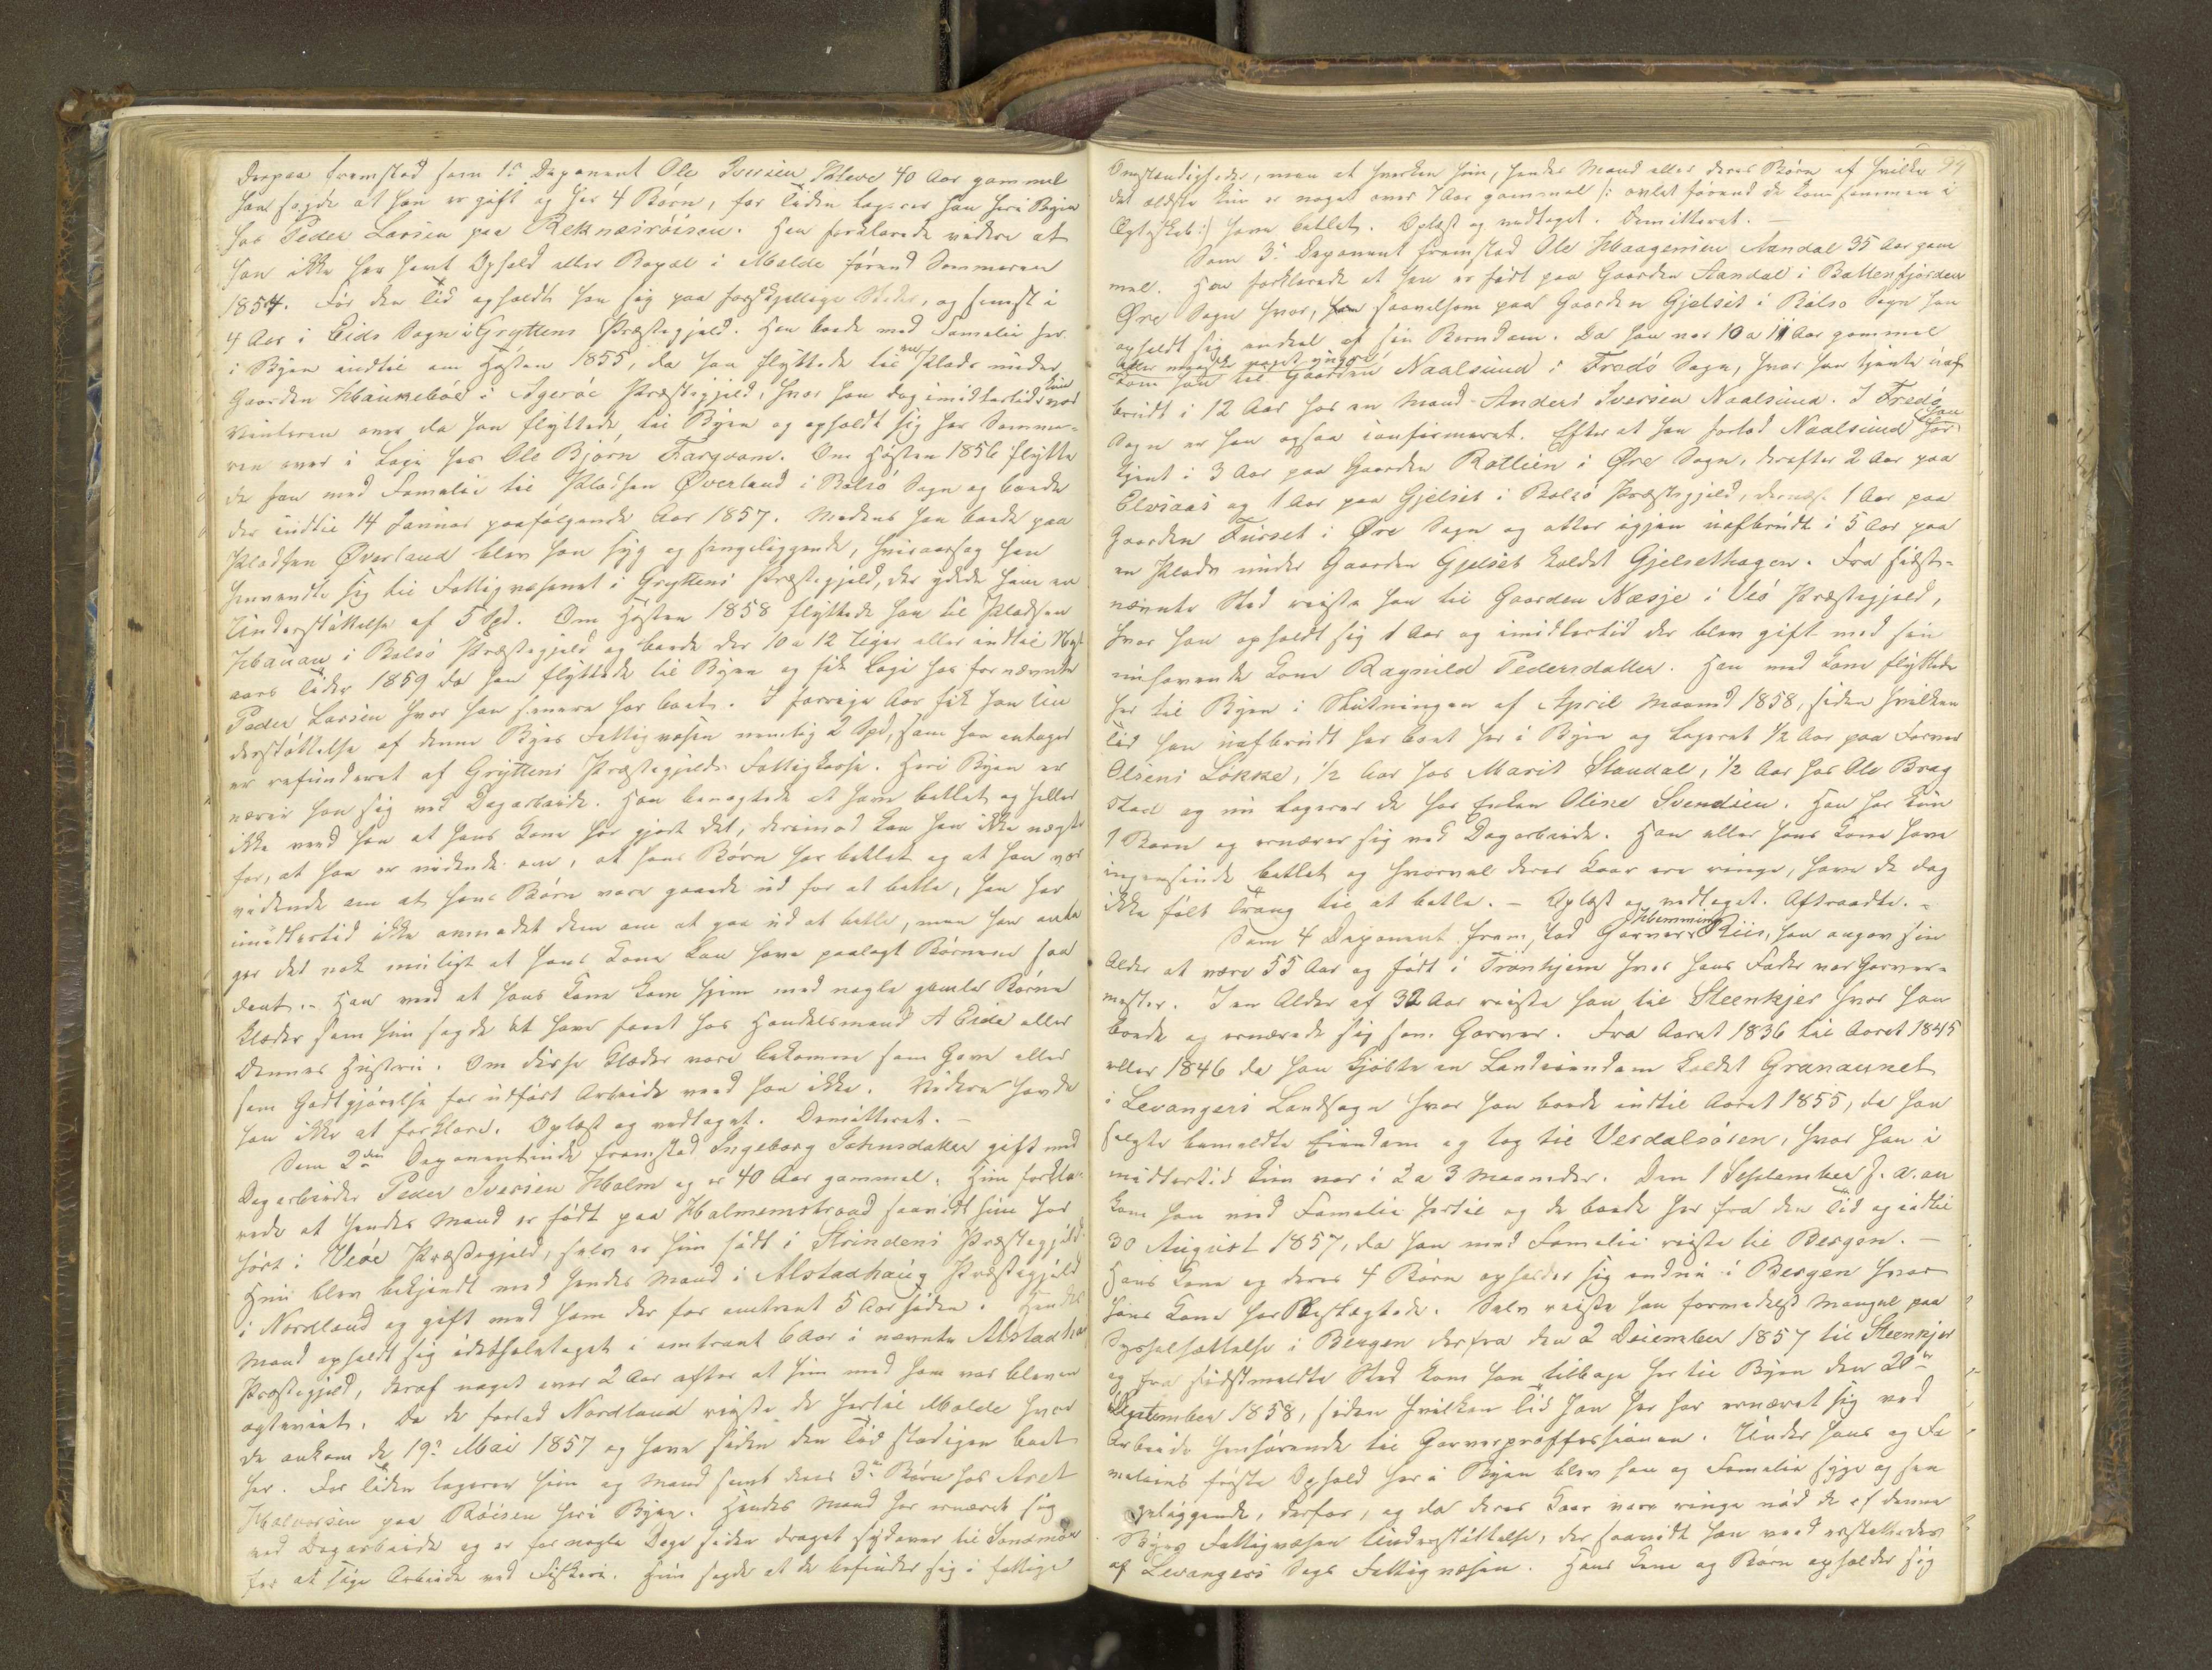 Derpaa fremstod som 1ste Deponent Ole Iversen Kleve 40 Aar gammel
han sagde at han er gift og har 4 Børn, for Tiden logerer han her i Byen
hos Peder Larsen paa Reknæsrøisen. Han forklarede videre at
han ikke har havt Ophold eller Bopæl i Molde førend Sommeren
1854. Før den Tid opholdt han sig paa forskjellige Steder, og senest i
4 Aar i Eids Sogn i Gryttens Præstegjæld. Han boede med Familie her
i Byen indtil om Høsten 1855, da han flyttede til en Plads under
Gaarden Haukebøe i Agerøe Præstegjeld, hvor han dog imidlertid kun var
Vinteren over da han flyttede til Byen og opholdt sig her Somme-
ren over i Logi hos Ole Bjørn Fargoam. Om Høsten 1856 flytte
de han med Familie til Pladsen Øverland i Bolsø Sogn og boede
der indtil 14 Januar paafølgende Aar 1857. Medens han boede paa
Pladsen Øverland blev han syg og sengeliggende, hvisaarsag han
henvendte sig til Fattigvæsenet i Gryttens Præstegjeld, der ydede ham en
Understøttelse af 5 Spd. Om Høsten 1858 flyttede han til Pladsen
Hauan i Bolsø Præstegjeld og boede der 10 a 12 Uger eller indtil Nyt-
aars Tider 1859 da han flyttede til Byen og fik Logi hos fornævnte
Peder Larsen hvor han senere har boet. I forrige Aar fik han Un
derstøttelse af denne Byes Fattigvæsen nemlig 2 Spd, som han antager
er refunderet af Gryttens Præstegjelds Fattigkasse. Her i Byen er
nærer han sig ved Dagarbeide. Han benægtede at have betlet og heller
ikke veed han at hans Kone har gjort det, derimod kan han ikke nægte
for, at han er vidende om, at hans Børn har betlet og at han var
vidende om at hans Børn vare gaaede ud for at betle, han har
imidlertid ikke anmodet dem om at gaa ud at betle, men han anta
ger det nok muligt at hans Kone kan have paalagt Børnene saa
dant. – Han veed at hans Kone kom hjem med nogle gamle Børne
klæder som hun sagde at have faaet hos Handelsmand A Eide eller
dennes Hustru. Om disse Klæder vare bekomne som Gave eller
som Godtgjørelse for udført Arbeide veed han ikke. Videre havde
han ikke at forklare. Oplæst og vedtaget. Demitteret. –
Som 2den Deponentinde fremstod Ingeborg Johnsdatter gift med
Dagarbeider Peder Iversen Holm og er 40 Aar gammel. Hun forkla-
rede at hendes Mand er født paa Holmemstrand saavidt hun har
hørt i Veøe Præstegjeld, selv er hun født i Strindens Præstegjeld.
Hun blev bekjendt med hendes Mand i Alstadhaug Præstegjeld
i Nordland og gift med ham der for omtrent 5 Aar siden. Hendes
Mand opholdt sig idetheletaget i omtrent 6 Aar i nævnte Alstadhaug
Præstegjeld, deraf noget over 2 Aar efter at hun med ham var bleven
egteviet. Da de forlod Nordland reiste de hertil Molde hvor
de ankom de 19de Mai 1857 og have siden den Tid stadigen boet
her. For Tiden logerer hun og Mand samt deres 3de Børn hos Aret
Halvorsen paa Røisen her i Byen. Hendes Mand har ernæret sig
ved Dagarbeide og er for nogle Dage siden draget sydover til Søndmør
for at søge Arbeide ved Fiskeri. Hun sagde at de befinder sig i fattige
94
Omstendigheder, men at hverken hun, hendes Mand eller deres Børn af hvilke
det ældste kun er noget over 7 Aar gammel /: avlet førend de kom sammen i
Egteskab :/ have betlet. Oplæst og vedtaget. Demitteret. –
Som 3de Deponent fremstod Ole Haagensen Aandal 35 Aar gam
mel. Han forklarede at han er født paa Gaarden Aandal i Battenfjorden
Øre Sogn hvor, han saavelsom paa Gaarden Gjelset i Bolsø Sogn han
opholdt sig endel af sin Barndom. Da han var 10 a 11 Aar gammel
eller maaske noget yngre
kom han til Gaarden Naalsund i Fredø Sogn, hvor han tjente uaf
brudt i 12 Aar hos en Mand Anders Iversen Naalsund. I Fredø
Sogn er han ogsaa confirmeret. Efter at han forlod Naalsund har han
tjent i 3 Aar paa Gaarden Rotlien i Øre Sogn, derefter 2 Aar paa
Elvsaas og 1 Aar paa Gjelset i Bolsø Præstegjeld, dernæst 1 Aar paa
Gaarden Furset i Øre Sogn og atter igjen uafbrudt i 5 Aar paa
en Plads under Gaarden Gjelset kaldet Gjelsethagen. Fra sidst-
nævnte Sted reiste han til Gaarden Næsje i Veø Præstegjeld,
hvor han opholdt sig 1 Aar og imidlertid der blev gift med sin
nuhavende Kone Ragnild Pedersdatter. Han med Kone flyttede
her til Byen i Slutningen af April Maaned 1858, siden hvilken
Tid han uafbrudt har boet her i Byen og logeret 1/2 Aar paa Farver
Olsens Løkke, 1/2 Aar hos Marit Staudal, 1/2 Aar hos Ole Brag
stad og nu logerer de hos Enken Oline Svendsen. Han har kun
1 Barn og ernærer sig ved Dagarbeide. Han eller hans Kone have
ingensinde betlet og hvorvel deres Kaar ere ringe, have de dog
ikke følt Trang til at betle. – Oplæst og vedtaget. Aftraadte. –
Som 4 Deponent frem, stod Garver Hemming Riis, han angav sin
Alder at være 55 Aar og født i Tronhjem hvor hans Fader var Garver-
mester. I en Alder af 32 Aar reiste han til Steenkjer hvor han
boede og ernærede sig som Garver. Fra Aaret 1836 til Aaret 1845
eller 1846 da han kjøbte en Landeiendom kaldet Granaunet
i Levangers Landsogn hvor han boede indtil Aaret 1855, da han
solgte bemeldte Eiendom og tog til Verdalsøren, hvor han i
midlertid kun var i 2 a 3 Maaneder. Den 1 September s. A. an
kom han med Familie hertil og de boede her fra den Tid og indtil
30 August 1857, da han med Familie reiste til Bergen. –
Hans Kone og deres 4 Børn opholder sig endnu i Bergen hvor
hans Kone har Beslægtede. Selv reiste han formedelst Mangel paa
Sysselsættelse i Bergen derfra den 2 December 1857 til Steenkjer
og fra sidstmeldte Sted kom han tilbage her til Byen den 20de
September 1858, siden hvilken Tid han her har ernæret sig ved
Arbeide henhørende til Garverproffessionen. Under hans og Fa
meliens første Ophold her i Byen blev han og Familie syge og sen
geliggende, derfor, og da deres Kaar vare ringe nød de af denne
Byes Fattigvæsen Understøttelse, der saavidt han veed erstattedes
af Levangers Sogs Fattigvæsen. Hans Kone og Børn opholder sig